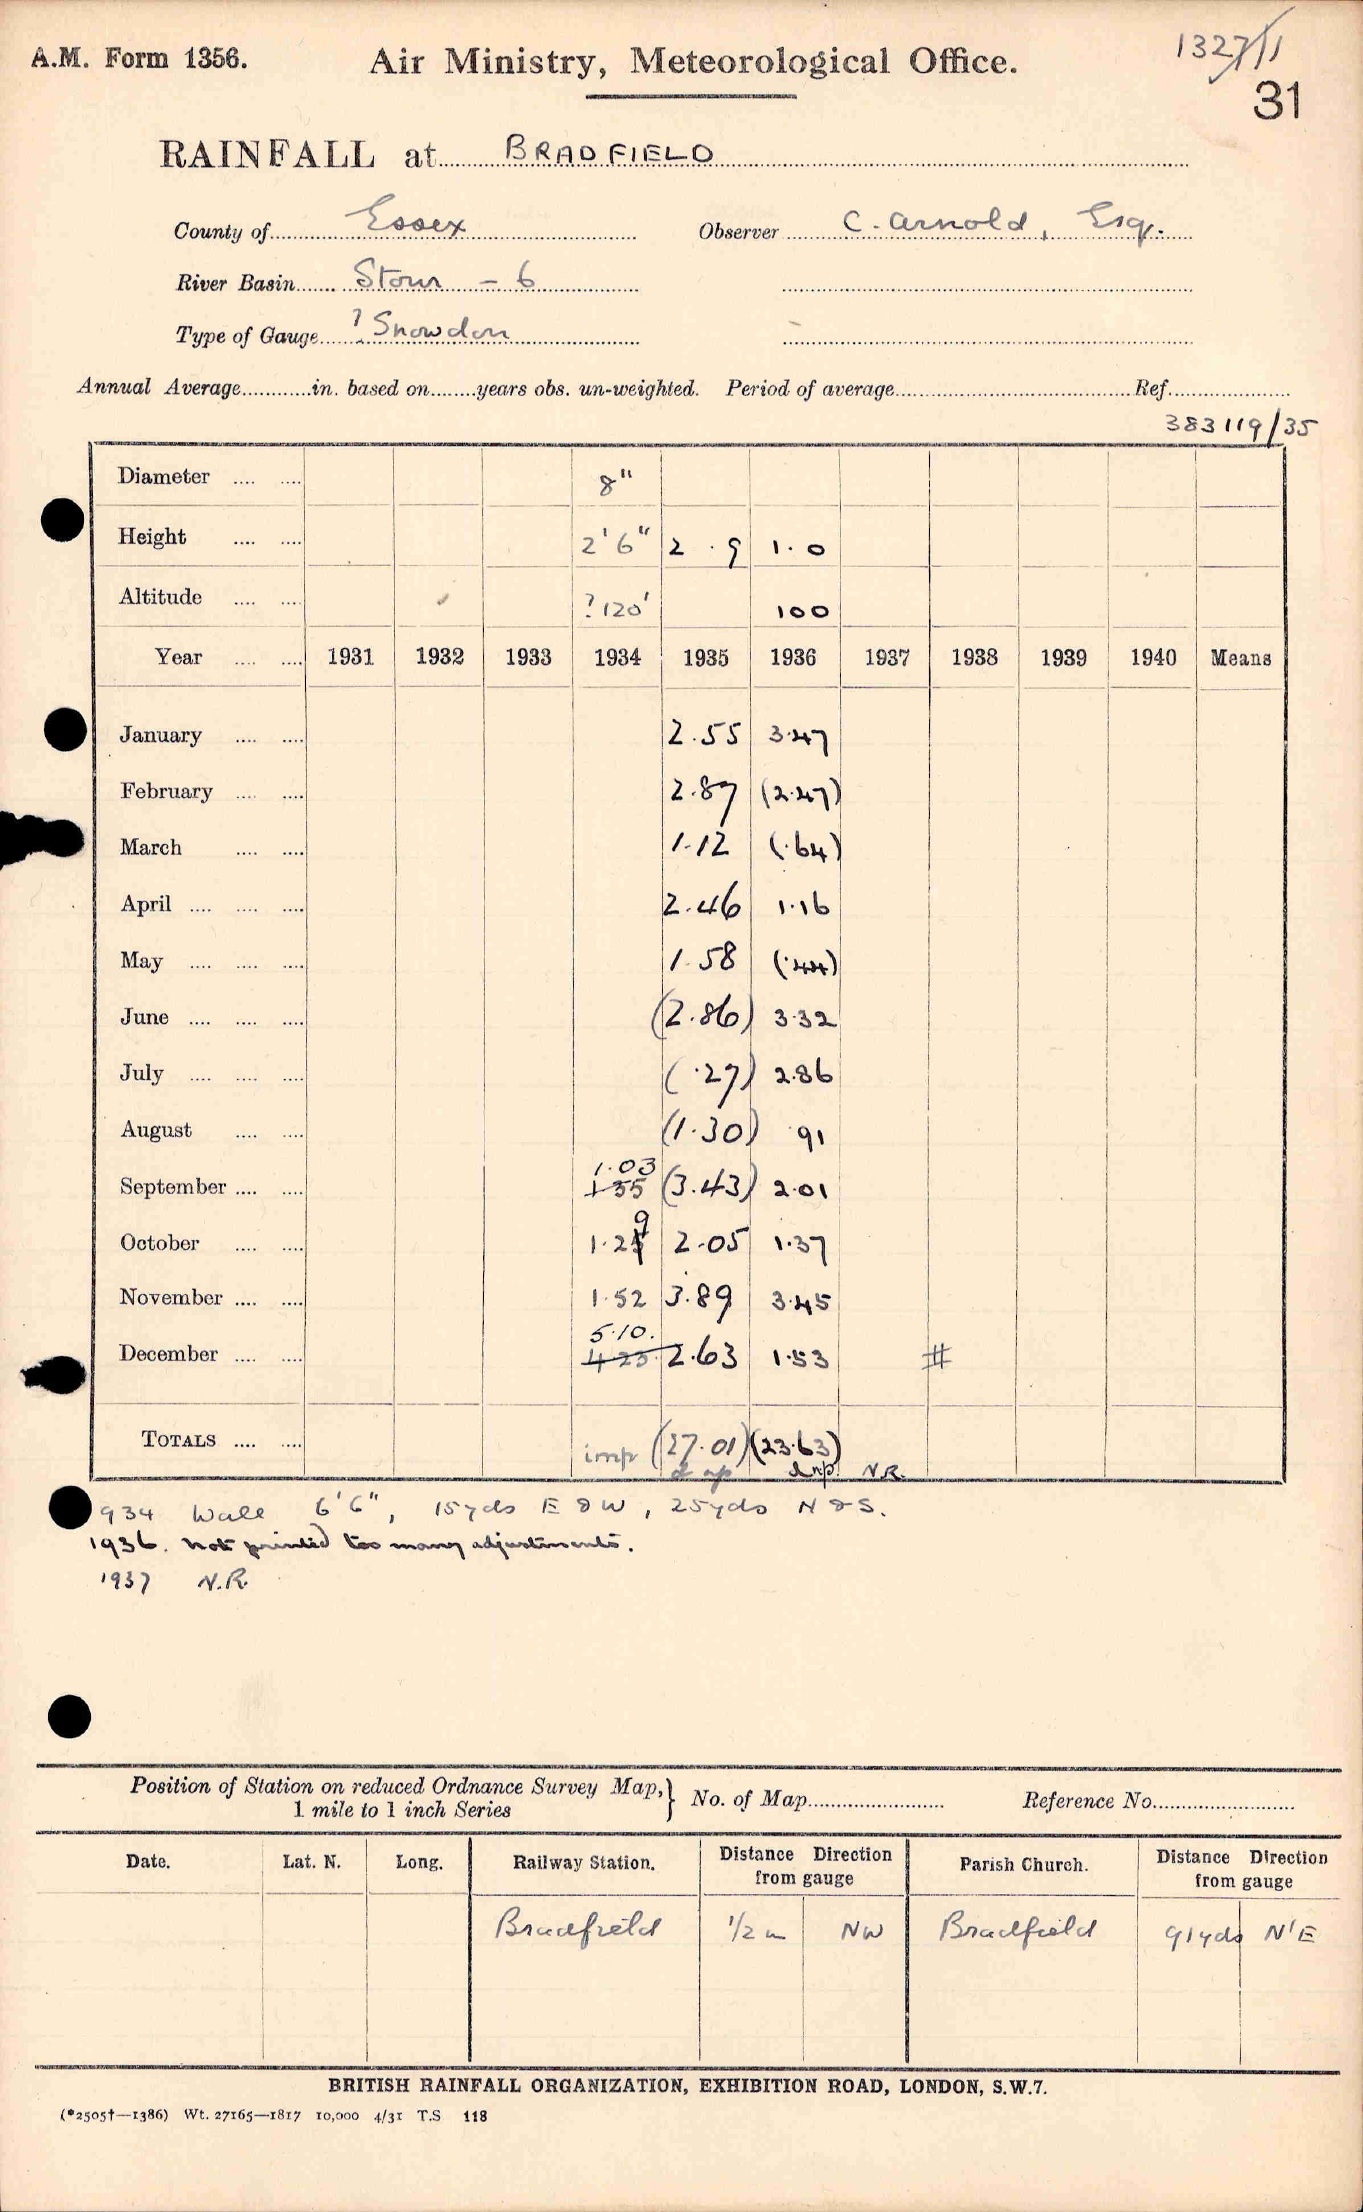 A.M. Form 1356.
Air Ministry, Meteorological Office.
1327/1
31
RAINFALL at BRADFIELD
County of Essex Observer C. Arnold, Esq.
River Basin Stour - 6
Type of Gauge ? Snowdon
Annual Average............in. based on........years obs. un-weighted. Period of average.................Ref.............
383119/35
Diameter .... .... 8"
Height .... .... 2'6" 2 . 9 1.0
Altitude .... .... ?120' 100
Year .... .... 1931 1932 1933 1934 1935 1936 1937 1938 1939 1940 Means
January .... .... 2.55 3.47
February .... .... 2.87 (2.47)
March .... .... 1.12 (.64)
April .... .... .... 2.46 1.16
May .... .... .... 1.58 (.44)
June .... .... .... (2.86) 3.32
July .... .... .... (.27) 2.86
August .... .... (1.30) .91
1.03
September .... .... 1 35 (3.43) 2.01
9
October .... .... 1.25 2.05 1.37
November .... .... 1.52 3.89 3.45
5.10.
December .... .... 4 23 2.63 1.53 #
TOTALS .... .... imp (27.01) (23.63)
N.R.
934 Wall 6'6", 15yds E & W, 25yds N & S.
1936. Not printed too many adjustments.
1937 N.R.
Position of Station on reduced Ordnance Survey Map,} No. of Map........................ Reference No.........................
1 mile to 1 inch Series
Date. Lat. N. Long. Railway Station. Distance Direction from gauge Parish Church. Distance Direction from gauge
Bradfield 1/2 m NW Bradfield 91yds N'E
BRITISH RAINFALL ORGANIZATION, EXHIBITION ROAD, LONDON, S.W.7.
(*2505†—1386) Wt. 27165—1817 10,000 4/31 T.S 118